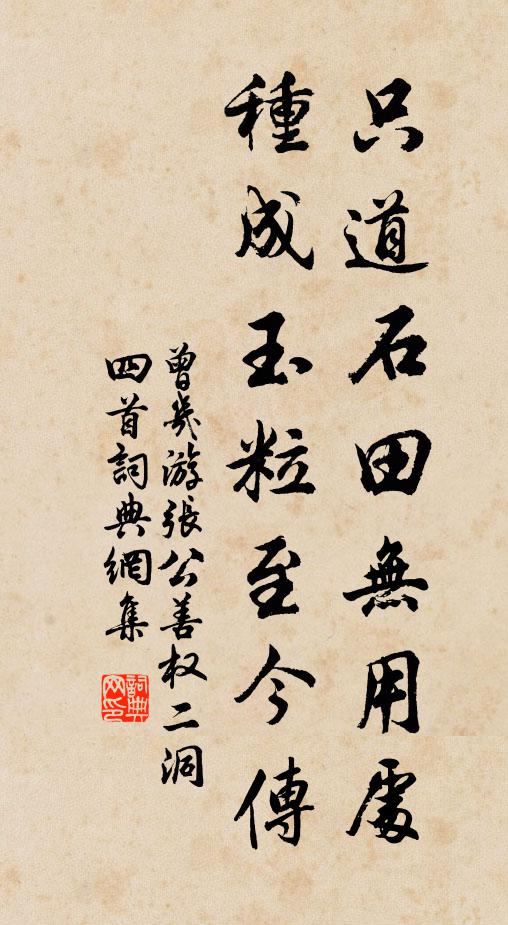 只道石田無用處
種成玉粒至今傳
曾幾游張公善权二洞
四首詞典網集
詞典網印